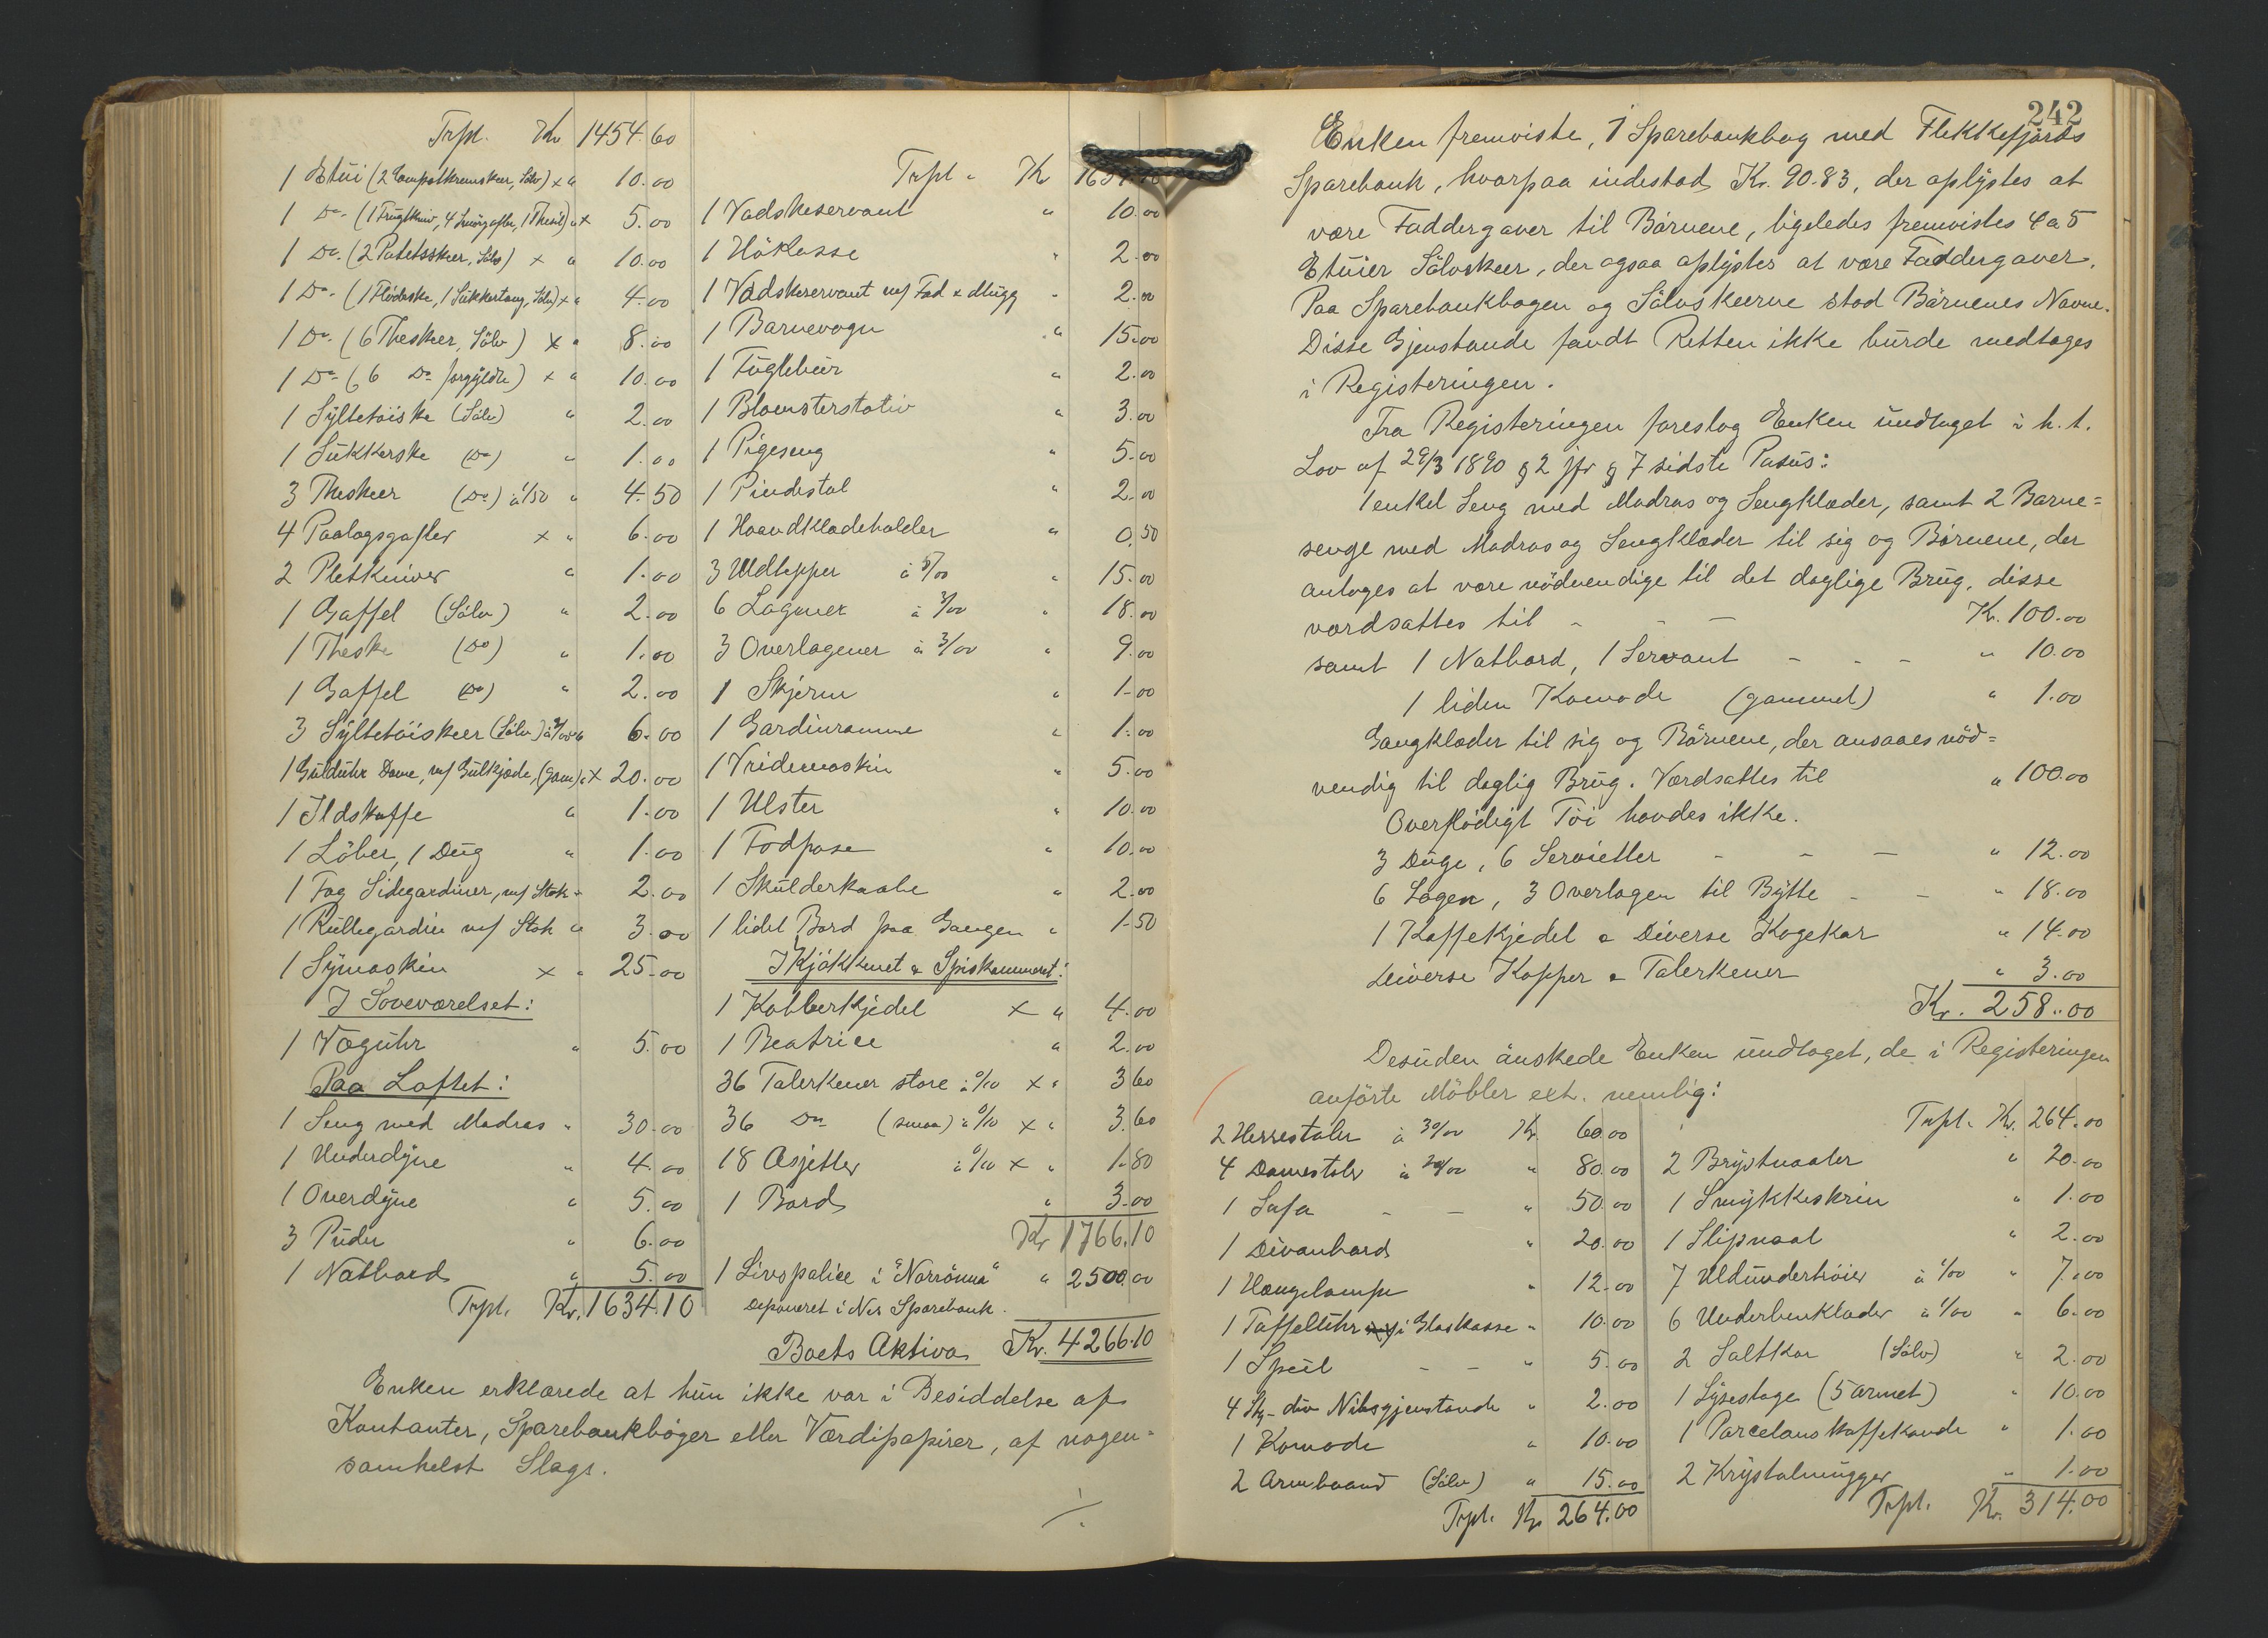 Trpt. Kr 1454.60
1 Etui (2 Compotkremskeer, Sölv) x " 10.00
1 Do. (1 Frugtkniv, 4 Smörgafler, 1 Thesil) " x 5.00
1 Do. (2 Potetsskeer, Sölv) x " 10.00
1 Do. (1 Flödeske, 1 Sukkertang, Sölv) x " 4.00
1 Do. (6 Theskeer, Sölv) x " 8.00
1 Do. (6 Do. forgyldte) x " 10.00
1 Syltetöiske (Sölv) " 2.00
1 Sukkerske (Do) " 1.00
3 Theskeer (Do) à 1/50 " 4.50
4 Paalægsgafler x " 6.00
2 Pletkniver " 1.00
1 Gaffel (Sölv) " 2.00
1 Theske (Do) " 1.00
1 Gaffel (Do) " 2.00
3 Syltetöiskeer (Sölv) à 2/00 " 6.00
1 Gulduhr Dame, m/ Gulkjæde, (gam) " x 20.00
1 Ildskuffe " 1.00
1 Löber, 1 Dug " 1.00
1 Fag Sidegardiner, m/ Stok " 2.00
1 Rullegardin m/ Stok " 3.00
1 Symaskin x " 25.00
I Soveværelset:
1 Væguhr " 5.00
Paa Loftet:
1 Seng med Madras " 30.00
1 Underdyne " 4.00
1 Overdyne " 5.00
3 Puder " 6.00
1 Natbord " 5.00
Trpt. Kr. 1634.10
Trpt. Kr 1634.10
1 Vadskeservant " 10.00
1 Hökasse " 2.00
1 Vadskeservant m/ Fad & Mugg " 2.00
1 Barnevogn " 15.00
1 Fuglebuir " 2.00
1 Blomsterstativ " 3.00
1 Pigeseng " 5.00
1 Pindestol " 2.00
1 Haandklædeholder " 0.50
3 Uldtepper à 5/00 " 15.00
6 Lagener à 3/00 " 18.00
3 Overlagener à 3/00 " 9.00
1 Skjerm " 1.00
1 Gardinramme " 1.00
1 Vridemaskin " 5.00
1 Ulster " 10.00
1 Fodpose " 10.00
1 Skulderkaabe " 2.00
1 lidet Bord paa Gangen " 1.50
I Kjökkenet & Spiskammeret:
1 Kobberkjedel x " 4.00
1 Beatrice " 2.00
36 Talerkener store à 0/10 x " 3.60
36 Do. (smaa) à 0/10 x " 3.60
18 Asjetter à 0/10 x " 1.80
1 Bord " 3.00
Kr 1766.10
1 Livspolice i "Norröna" " 2500.00
Deponeret i Nes Sparebank.
Boets Aktiva Kr. 4266.10
Enken erklærede at hun ikke var i Besiddelse af
Kontanter, Sparebankböger eller Værdipapirer, af nogen=
somhelst Slags.
·/.
242
Enken fremviste, 1 Sparebankbog med Flekkefjords
Sparebank, hvorpaa indestod Kr. 90.83, der oplystes at
være Faddergaver til Börnene, ligeledes fremvistes 4 a 5
Etuier Sölvskeer, der ogsaa oplystes at være Faddergaver.
Paa Sparebankbogen og Sölvskeerne stod Börnenes Navne.
Disse Gjenstande fandt Retten ikke burde medtages
i Registeringen.
Fra Registeringen foreslog Enken undtaget i h. t.
Lov af 29/3 1890 § 2 jfr § 7 sidste Pasus:
1 enkel Seng med Madras og Sengklæder, samt 2 Barne=
senge med Madras og Sengklæder til sig og Börnene, der
antoges at være nödvendige til det daglige Brug, disse
værdsattes til - - - Kr. 100.00
samt 1 Natbord, 1 Servant - - - " 10.00
1 liden Komode (gammel) " 1.00
Gangklæder til sig og Börnene, der ansaaes nöd=
vendig til daglig Brug. Værdsattes til " 100.00
Overflödigt Töi havdes ikke.
3 Duge, 6 Servietter - - - " 12.00
6 Lagen, 3 Overlagen til Bytte - - " 18.00
1 Kaffekjedel & Diverse Kogekar " 14.00
Diverse Kopper & Talerkener " 3.00
Kr. 258.00
Desuden önskede Enken undtaget, de i Registeringen
anförte Möbler ect. nemlig:
2 Herrestoler à 30/00 Kr. 60.00
4 Damestoler à 20/00 " 80.00
1 Sofa - - " 50.00
1 Divanbord " 20.00
1 Hængelampe " 12.00
1 Taffeluhr i Glaskasse " 10.00
1 Speil - - " 5.00
4 Stk. div Nibsgjenstande " 2.00
1 Komode " 10.00
2 Armbaand (Sölv) " 15.00
Trpt. Kr 264.00
Trpt. Kr. 264.00
2 Brystnaaler " 20.00
1 Smykkeskrin " 1.00
1 Slipsnaal " 2.00
7 Uldundertröier à 1/00 " 7.00
6 Underbenklæder à 1/00 " 6.00
2 Saltkar (Sölv) " 2.00
1 Lysestage (5 armet) " 10.00
1 Porcelans Kaffekande " 1.00
2 Krystalmugger " 1.00
Trpt. Kr. 314.00